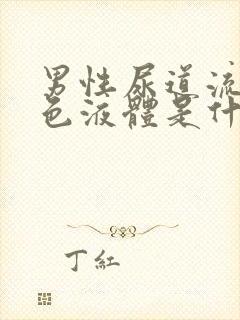 男性尿道流
色液體是什
丁紅